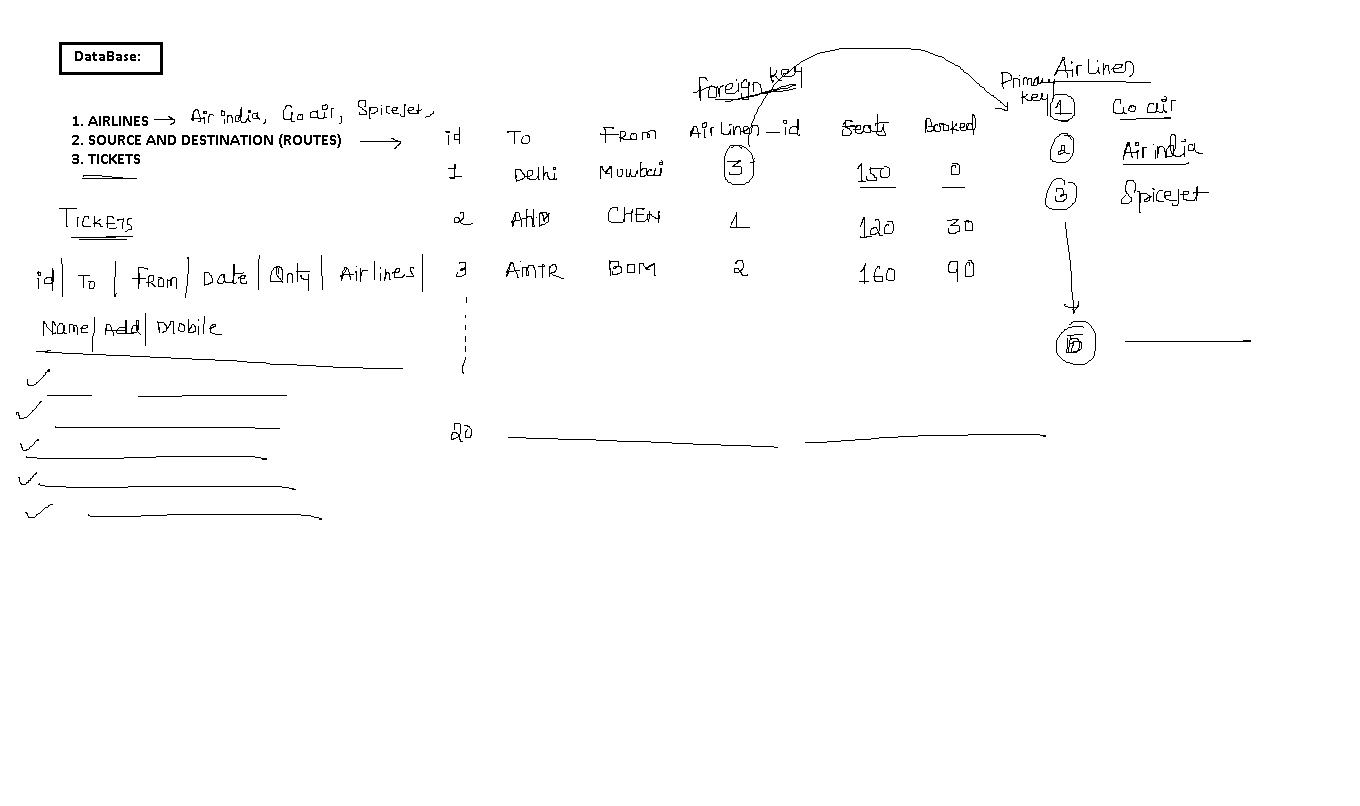 DataBase:
1. AIRLINES → Air india, Go air, Spicejet,
2. SOURCE AND DESTINATION (ROUTES) →
3. TICKETS
TICKETS
id | To | From | Date | Qnty | Airlines |
Name | Add | Mobile
foreign key
id To From Air Lines_id Seats Booked
1 Delhi Mumbai 3 150 0
2 AHD CHEN 1 120 30
3 AMTR BOM 2 160 90
20
Primary key
Air Lines
1 Go air
2 Air india
3 Spicejet